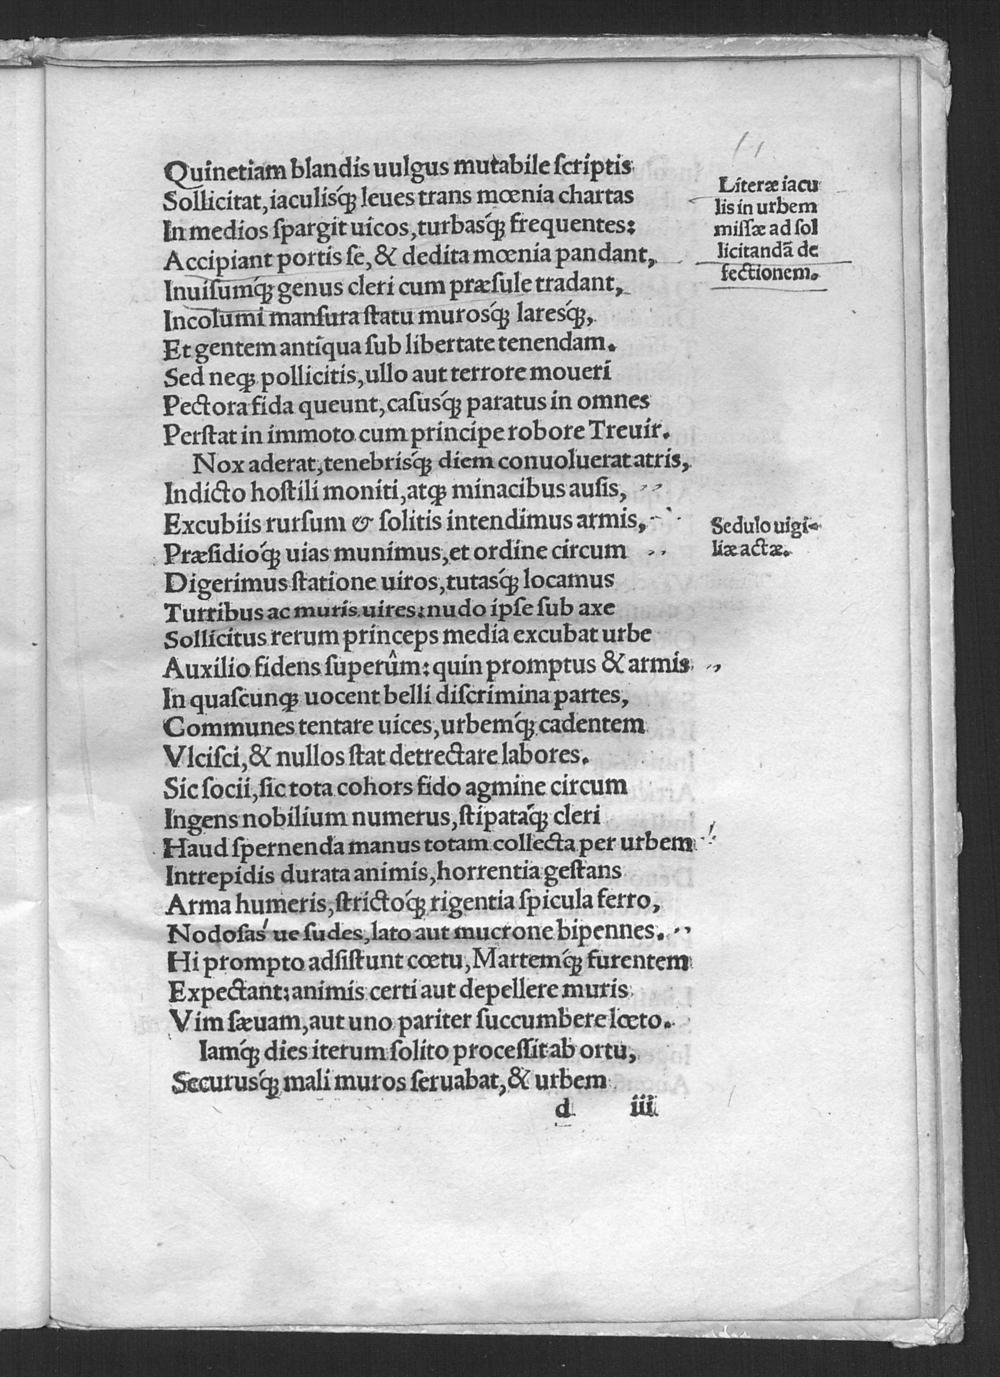 Quinetiam blandis uulgus mutabile ſcriptis
Sollicitat, iaculisq́ꝫ leues trans mœnia chartas
In medios ſpargit uicos, turbasq́ꝫ frequentes:
Accipiant portis ſe, & dedita mœnia pandant,
Inuiſumq́ꝫ genus cleri cum præſule tradant,
Incolumi manſura ſtatu murosq́ꝫ laresq́ꝫ,
Et gentem antiqua ſub libertate tenendam.
Sed neqꝫ pollicitis, ullo aut terrore moueri
Pectora fida queunt, caſusq́ꝫ paratus in omnes
Perſtat in immoto cum principe robore Treuir.
Nox aderat, tenebrisq́ꝫ diem conuoluerat atris,
Indicto hoſtili moniti, atqꝫ minacibus auſis,
Excubiis rurſum & ſolitis intendimus armis,
Præſidioq́ꝫ uias munimus, et ordine circum
Digerimus ſtatione uiros, tutasq́ꝫ locamus
Turribus ac muris uires: nudo ipſe ſub axe
Sollicitus rerum princeps media excubat urbe
Auxilio fidens ſuperûm: quin promptus & armis
In quaſcunqꝫ uocent belli diſcrimina partes,
Communes tentare uices, urbemq́ꝫ cadentem
Vlciſci, & nullos ſtat detrectare labores.
Sic ſocii, ſic tota cohors fido agmine circum
Ingens nobilium numerus, ſtipataq́ꝫ cleri
Haud ſpernenda manus totam collecta per urbem
Intrepidis durata animis, horrentia geſtans
Arma humeris, ſtrictoq́ꝫ rigentia ſpicula ferro,
Nodoſas ue ſudes, lato aut mucrone bipennes.
Hi prompto adſiſtunt cœtu, Martemq́ꝫ furentem
Expectant: animis certi aut depellere muris
Vim ſæuam, aut uno pariter ſuccumbere lœto.
Iamq́ꝫ dies iterum ſolito proceſſit ab ortu,
Securusq́ꝫ mali muros ſeruabat, & urbem
d iii
Literæ iacu
lis in urbem
miſſæ ad ſol
licitandã de
fectionem.
Sedulo uigi-
liæ actæ.